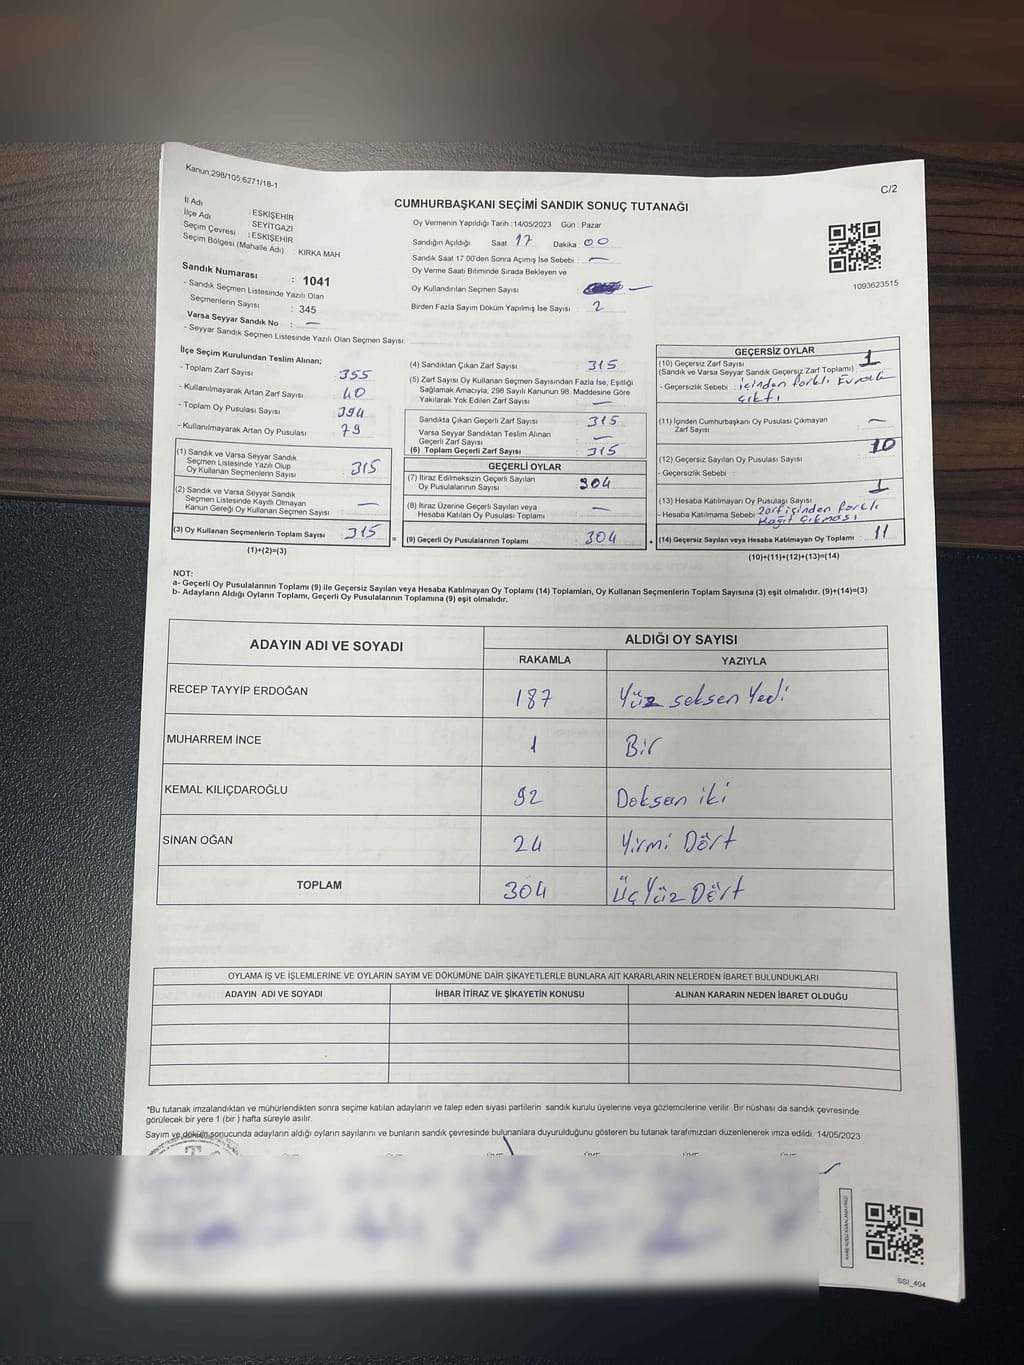 Kanun;298/105,6271/18-1
C/2
CUMHURBAŞKANI SEÇİMİ SANDIK SONUÇ TUTANAĞI
İl Adı : ESKİŞEHİR
İlçe Adı : SEYİTGAZİ
Seçim Çevresi : ESKİŞEHİR
Seçim Bölgesi (Mahalle Adı) : KIRKA MAH.
Sandık Numarası : 1041
- Sandık Seçmen Listesinde Yazılı Olan
Seçmenlerin Sayısı : 345
Varsa Seyyar Sandık No : —
- Seyyar Sandık Seçmen Listesinde Yazılı Olan Seçmen Sayısı:
Oy Vermenin Yapıldığı Tarih :14/05/2023 Gün : Pazar
Sandığın Açıldığı Saat 17 Dakika 00
Sandık Saat 17.00'den Sonra Açımış İse Sebebi : —
Oy Verme Saati Bitiminde Sırada Bekleyen ve
Oy Kullandırılan Seçmen Sayısı : —
Birden Fazla Sayım Döküm Yapılmış İse Sayısı : 2
1093623515
İlçe Seçim Kurulundan Teslim Alınan;
- Toplam Zarf Sayısı : 355
- Kullanılmayarak Artan Zarf Sayısı : 40
- Toplam Oy Pusulası Sayısı : 394
- Kullanılmayarak Artan Oy Pusulası : 79
(1) Sandık ve Varsa Seyyar Sandık
Seçmen Listesinde Yazılı Olup
Oy Kullanan Seçmenlerin Sayısı : 315
(2) Sandık ve Varsa Seyyar Sandık
Seçmen Listesinde Kayıtlı Olmayan
Kanun Gereği Oy Kullanan Seçmen Sayısı : —
(3) Oy Kullanan Seçmenlerin Toplam Sayısı : 315
(1)+(2)=(3)
=
(4) Sandıktan Çıkan Zarf Sayısı : 315
(5) Zarf Sayısı Oy Kullanan Seçmen Sayısından Fazla İse, Eşitliği
Sağlamak Amacıyla; 298 Sayılı Kanunun 98. Maddesine Göre
Yakılarak Yok Edilen Zarf Sayısı : —
Sandıkta Çıkan Geçerli Zarf Sayısı : 315
Varsa Seyyar Sandıktan Teslim Alınan
Geçerli Zarf Sayısı : —
(6) Toplam Geçerli Zarf Sayısı : 315
GEÇERLİ OYLAR
(7) İtiraz Edilmeksizin Geçerli Sayılan
Oy Pusulalarının Sayısı : 304
(8) İtiraz Üzerine Geçerli Sayılan veya
Hesaba Katılan Oy Pusulası Toplamı : —
(9) Geçerli Oy Pusulalarının Toplamı : 304
+
GEÇERSİZ OYLAR
(10) Geçersiz Zarf Sayısı : 1
(Sandık ve Varsa Seyyar Sandık Geçersiz Zarf Toplamı)
- Geçersizlik Sebebi : içinden farklı Evrak
çıktı
(11) İçinden Cumhurbaşkanı Oy Pusulası Çıkmayan
Zarf Sayısı : —
(12) Geçersiz Sayılan Oy Pusulası Sayısı : 10
- Geçersizlik Sebebi :
(13) Hesaba Katılmayan Oy Pusulası Sayısı : 1
- Hesaba Katılmama Sebebi : Zarf içinden farklı
Kağıt Çıkması
(14) Geçersiz Sayılan veya Hesaba Katılmayan Oy Toplamı : 11
(10)+(11)+(12)+(13)=(14)
NOT:
a- Geçerli Oy Pusulalarının Toplamı (9) ile Geçersiz Sayılan veya Hesaba Katılmayan Oy Toplamı (14) Toplamları, Oy Kullanan Seçmenlerin Toplam Sayısına (3) eşit olmalıdır. (9)+(14)=(3)
b- Adayların Aldığı Oyların Toplamı, Geçerli Oy Pusulalarının Toplamına (9) eşit olmalıdır.
ADAYIN ADI VE SOYADI
ALDIĞI OY SAYISI
RAKAMLA YAZIYLA
RECEP TAYYİP ERDOĞAN 187 Yüz seksen Yedi
MUHARREM İNCE 1 Bir
KEMAL KILIÇDAROĞLU 92 Doksan iki
SİNAN OĞAN 24 Yirmi Dört
TOPLAM 304 Üç Yüz Dört
OYLAMA İŞ VE İŞLEMLERİNE VE OYLARIN SAYIM VE DÖKÜMÜNE DAİR ŞİKAYETLERLE BUNLARA AİT KARARLARIN NELERDEN İBARET BULUNDUKLARI
ADAYIN ADI VE SOYADI İHBAR İTİRAZ VE ŞİKAYETİN KONUSU ALINAN KARARIN NEDEN İBARET OLDUĞU
*Bu tutanak imzalandıktan ve mühürlendikten sonra seçime katılan adayların ve talep eden siyasi partilerin sandık kurulu üyelerine veya gözlemcilerine verilir .Bir nüshası da sandık çevresinde
görülecek bir yere 1 (bir ) hafta süreyle asılır.
Sayım ve döküm sonucunda adayların aldığı oyların sayılarını ve bunların sandık çevresinde bulunanlara duyurulduğunu gösteren bu tutanak tarafımızdan düzenlenerek imza edildi. 14/05/2023
SSI_404